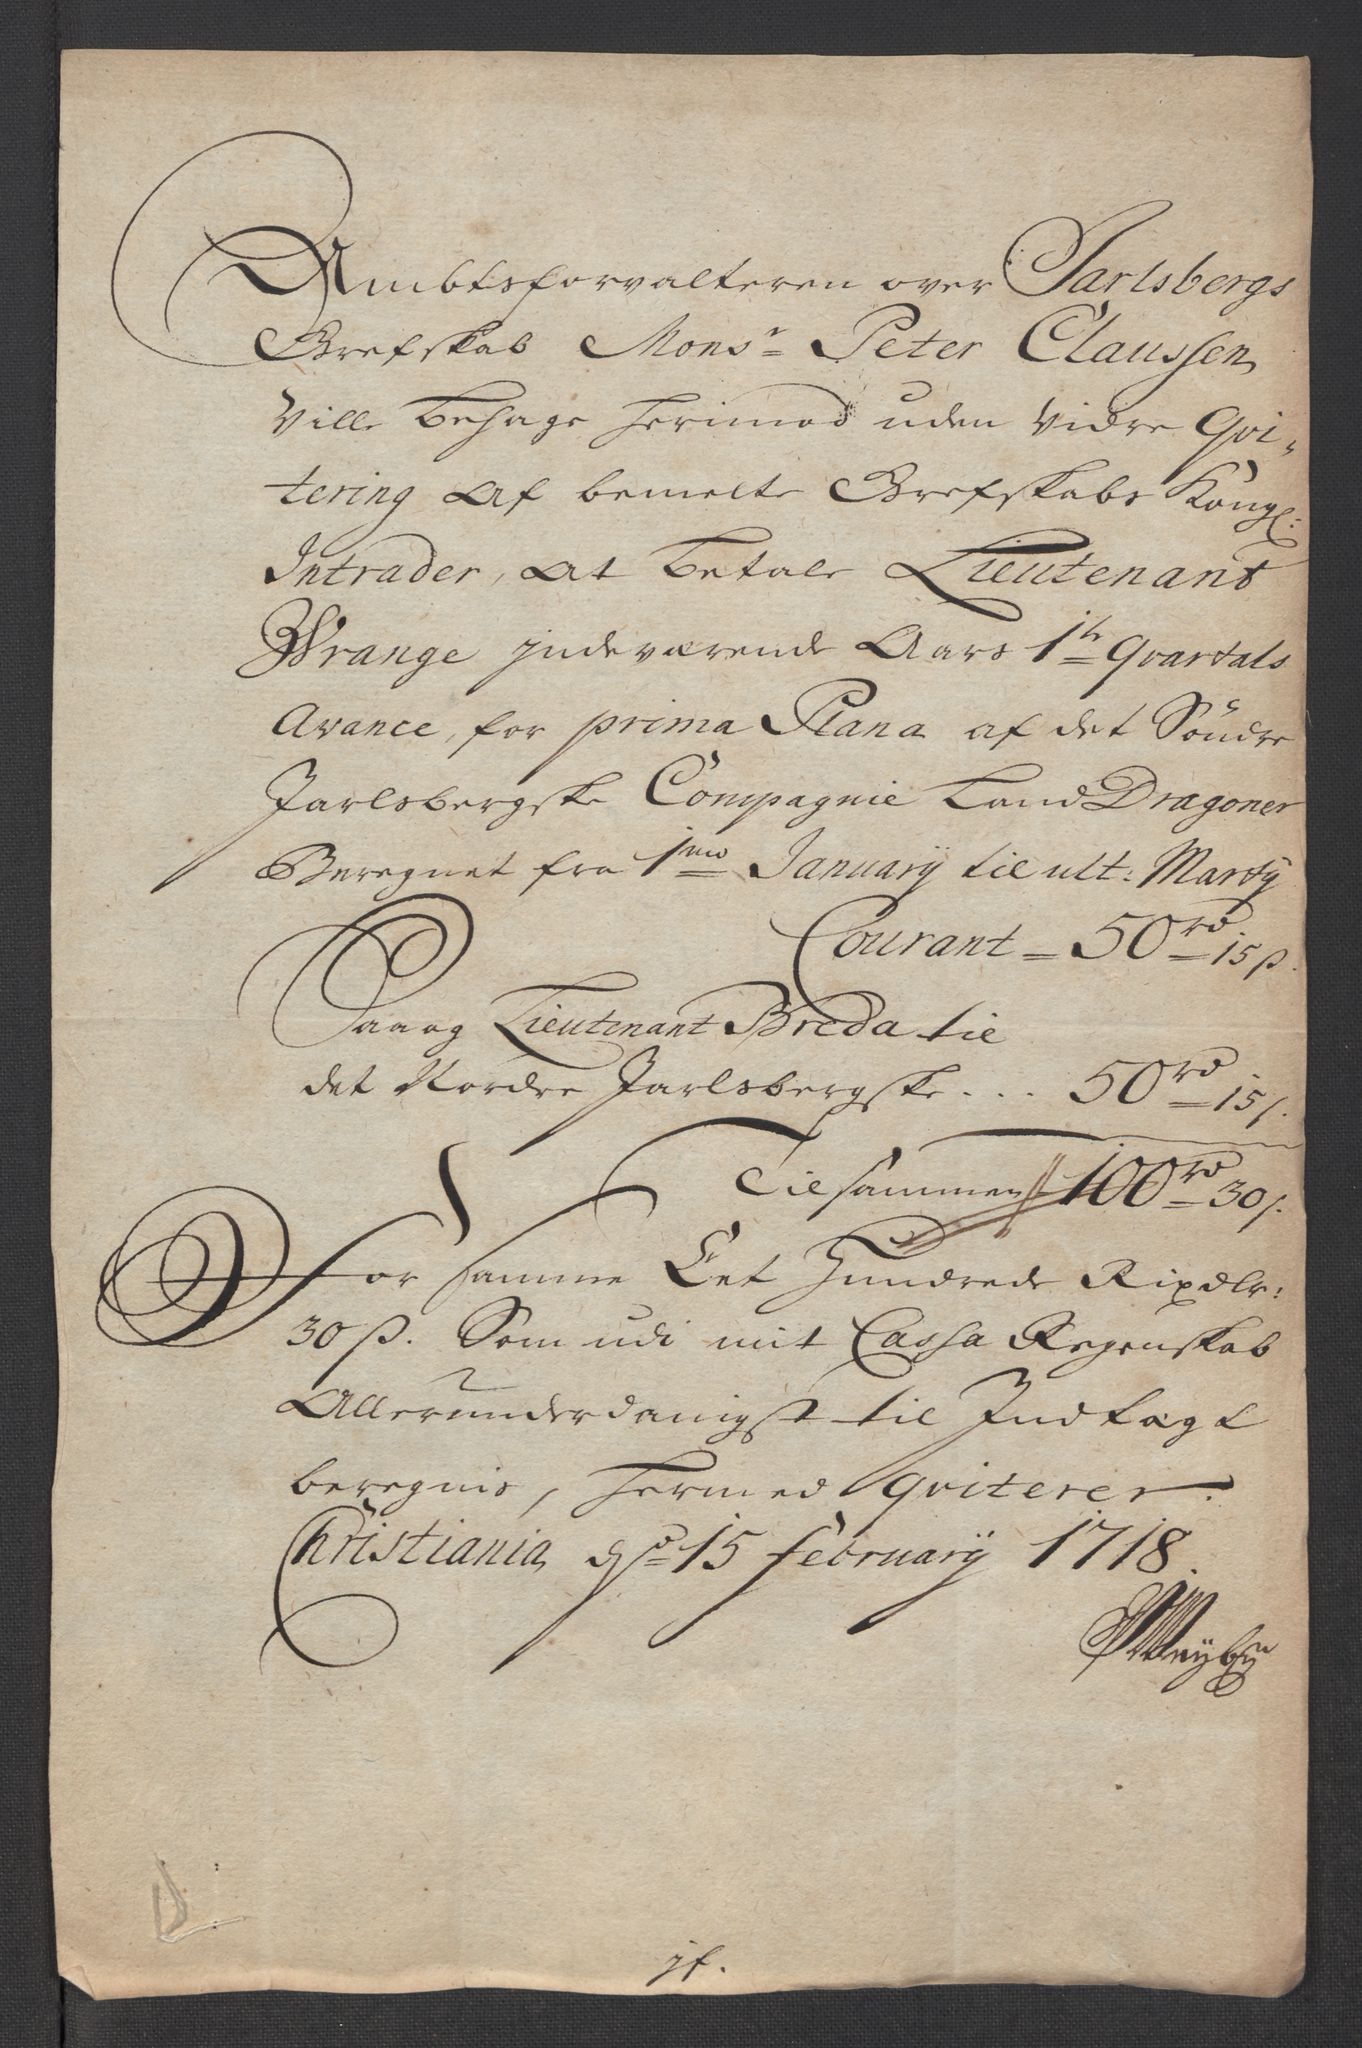 Ambtsforvalteren over Jarlsbergs
Grefskab Monsr Peter Claussen
Ville behage herimod uden vidre Qvi-
tering af bemelte Grefskabs Kongl:
Intrader, at betale Lieutenant
Wrange indeværende Aars 1te Qvartals
Avance, for prima Plana af det Söndre
Jarlsbergske Compagnie Land Dragoner
Beregnet fra 1mo January til ult: Marty
Courant = 50 rd 15 ß.
Saa og Lieutenant Breda til
det Nordre Jarlsbergske ... 50 rd 15 ß.
Tilsammen 100 rd 30 ß.
For samme Eet Hundrede Rixdlr:
30 ß. Som udi mit Cassa Regenskab
Allerunderdanigst til Indtægt
beregnis, hermed qviterer.
Christiania d. 15 February 1718.